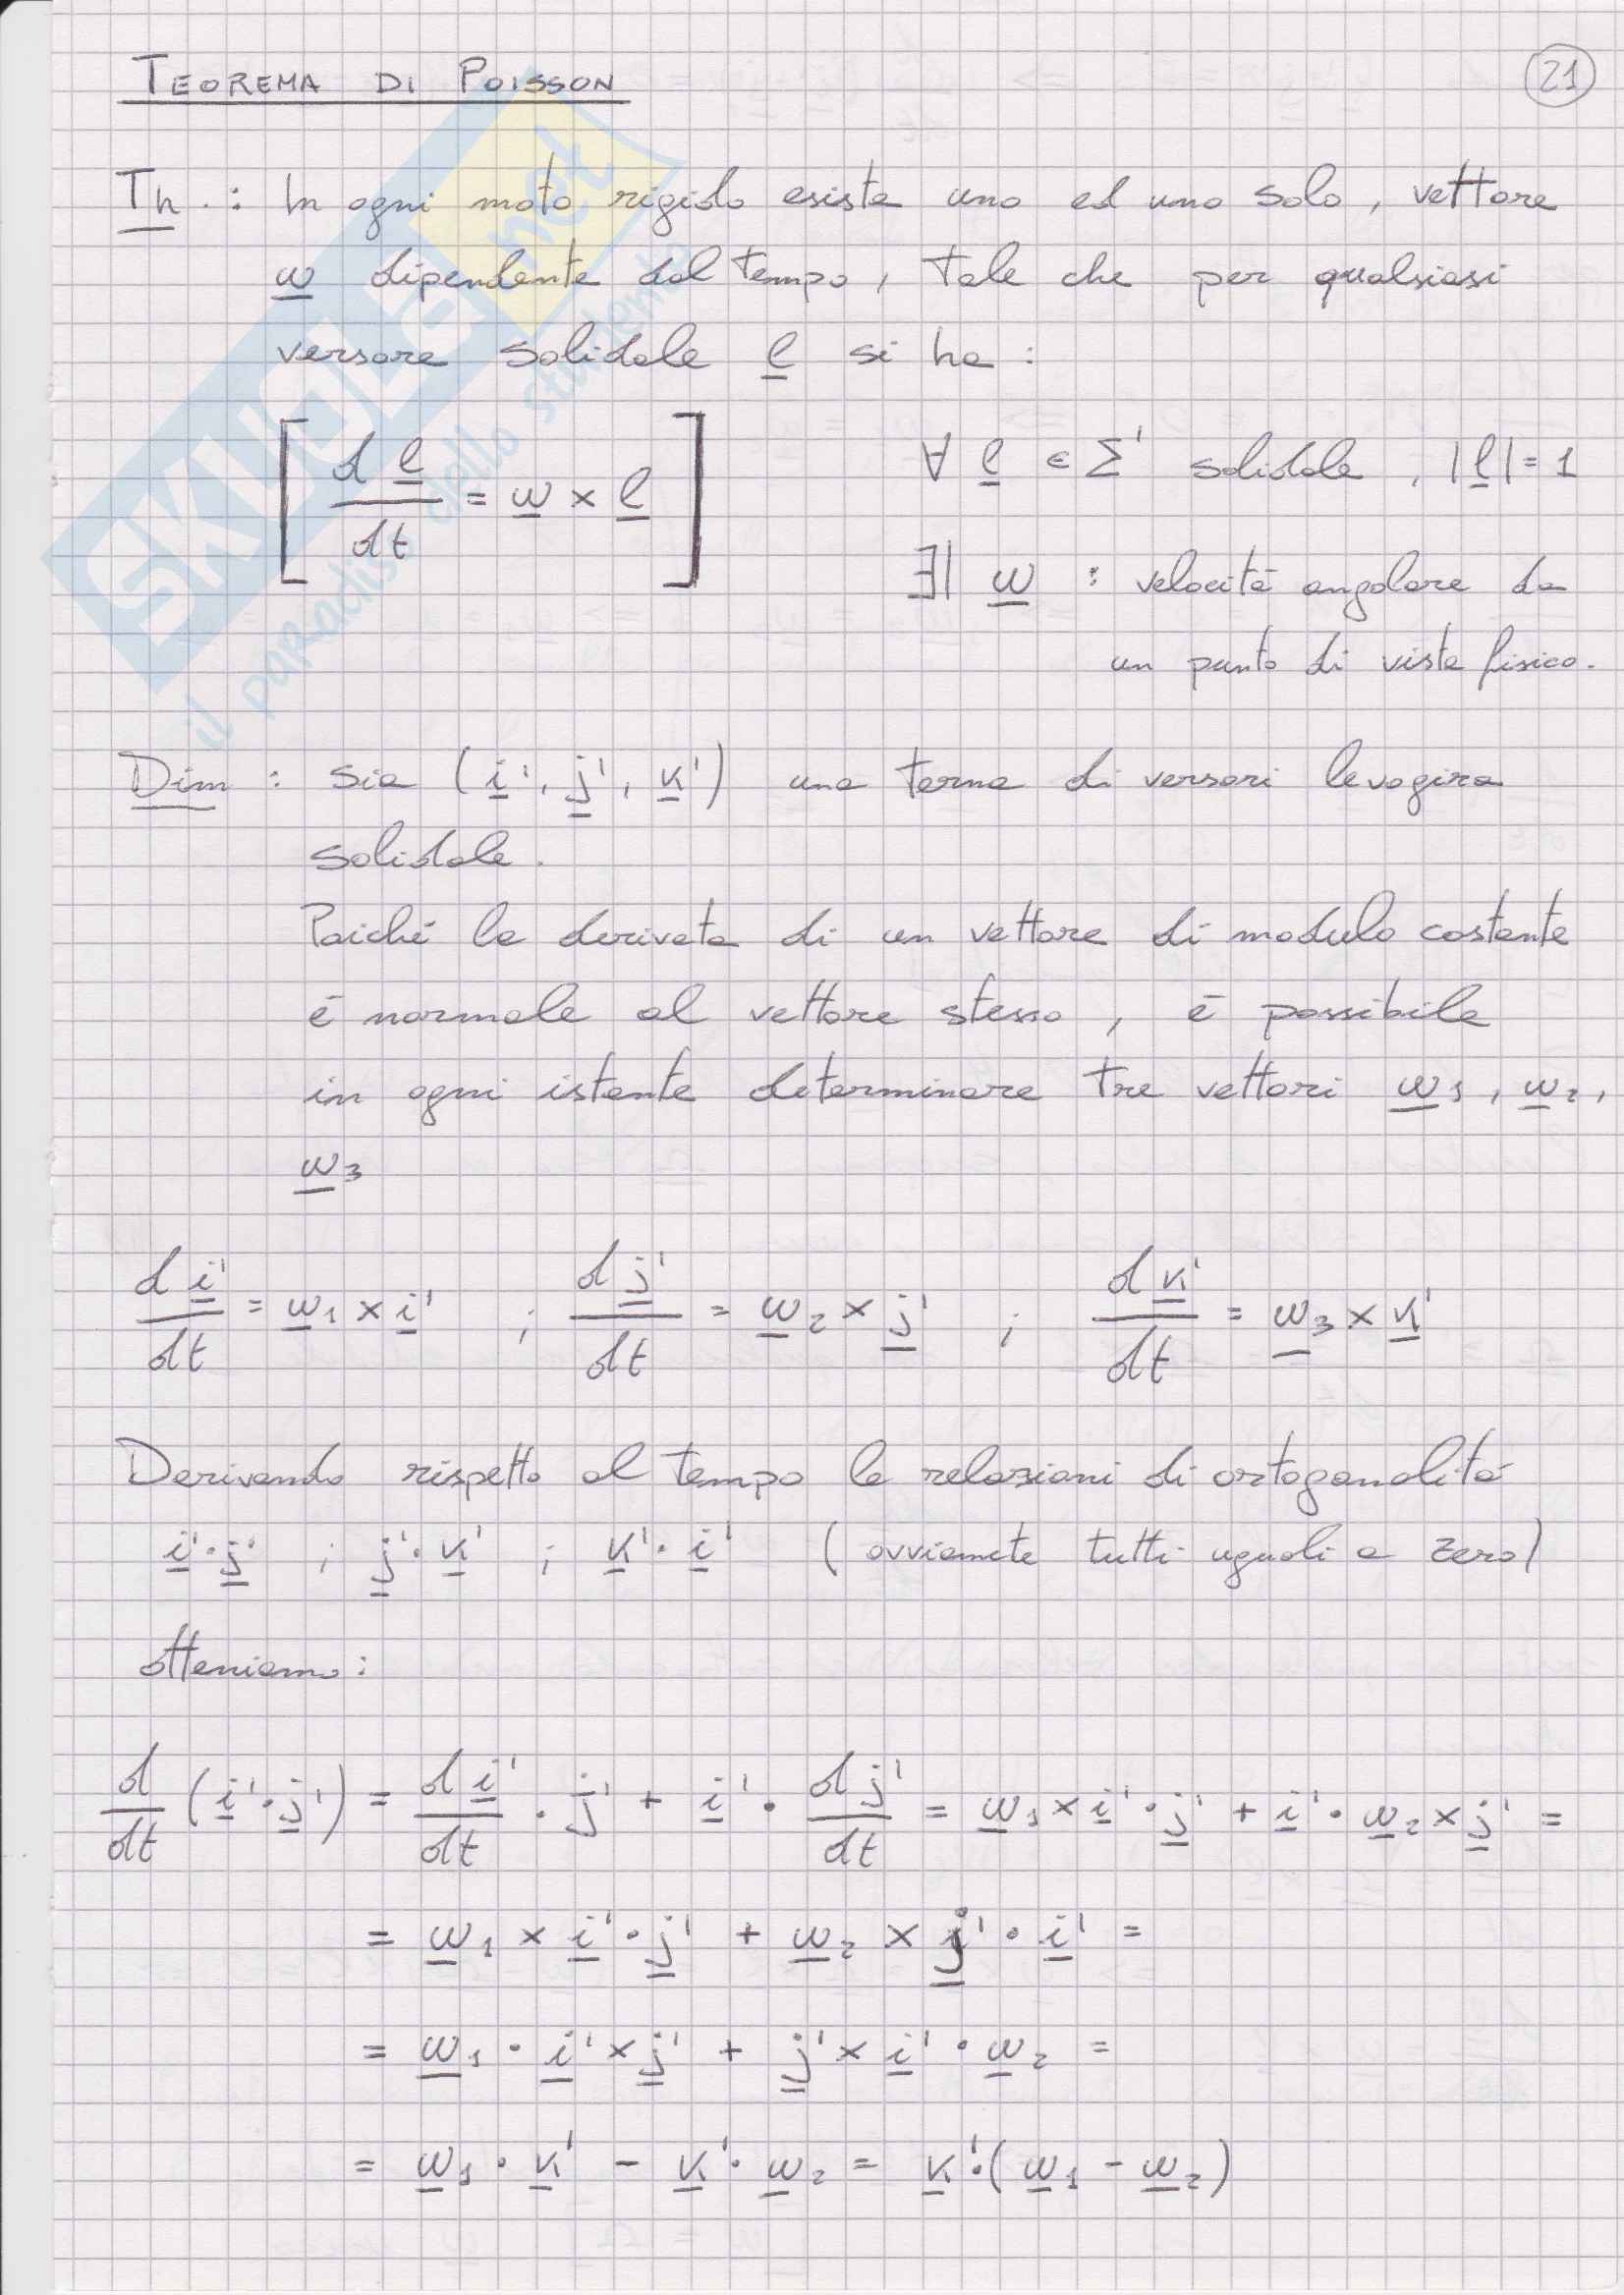 TEOREMA DI POISSON
21
Th.: In ogni moto rigido esiste uno ed uno solo, vettore
ω dipendente dal tempo, tale che per qualsiasi
versore solidale e si ha:
[ d e / dt = ω × e ]
∀ e ∈ Σ' solidale, |e| = 1
∃| ω : velocità angolare da
un punto di vista fisico.
Dim: sia (i', j', k') una terna di versori levogira
solidale.
Poiché la derivata di un vettore di modulo costante
è normale al vettore stesso, è possibile
in ogni istante determinare tre vettori ω1, ω2,
ω3
d i' / dt = ω1 × i' ; d j' / dt = ω2 × j' ; d k' / dt = ω3 × k'
Derivando rispetto al tempo le relazioni di ortogonalità
i'·j' ; j'·k' ; k'·i' (ovviamete tutti uguali a zero)
otteniamo:
d/dt (i'·j') = d i'/dt · j' + i' · d j'/dt = ω1 × i' · j' + i' · ω2 × j' =
= ω1 × i' · j' + ω2 × j' · i' =
= ω1 · i' × j' + j' × i' · ω2 =
= ω1 · k' - k' · ω2 = k' · (ω1 - ω2)
SKUOLA.net
il paradiso dello studente